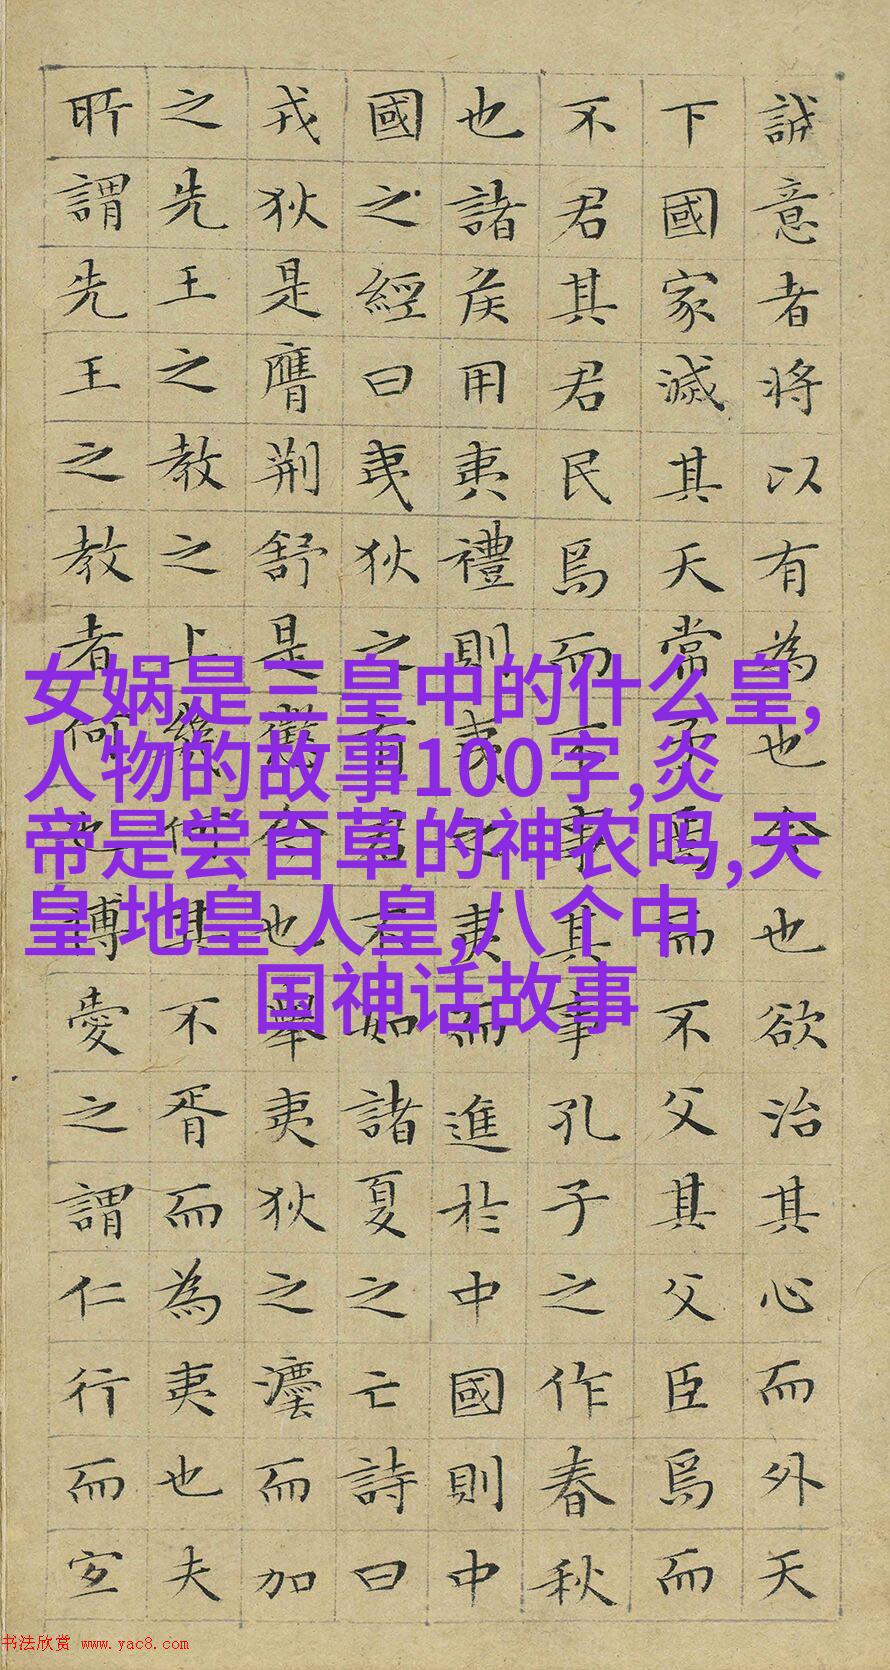 誠意者将以有為也今也欲治其心而外天
下國家滅其天常子焉而不父其父臣焉而
不君其君民焉而不事其事孔子之作春秋
也諸侯用夷禮則夷之夷而進於中國則中
國之經曰夷狄之有君不如諸夏之亡詩曰
戎狄是膺荆舒是懲今也舉夷狄之灋而加
之先王之教之上幾何其不胥而為夷也夫
所謂先王之教者何也博愛之謂仁行而宜
女娲是三皇中的什么皇,
人物的故事100字,炎
帝是尝百草的神农吗,天
皇 地皇 人皇,八个中
国神话故事
书法欣赏 www.yac8.com